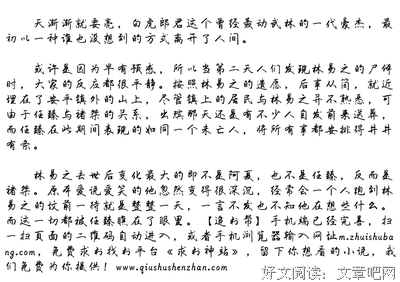 天渐渐就要亮，白虎郎君这个曾经轰动武林的一代豪杰，最
初以一种谁也没想到的方式离开了人间。
或许是因为早有预感，所以当第二天人们发现林易之的尸体
时，大家的反应都很平静。按照林易之的遗愿，后事从简，就近
埋在了安平镇外的山上，尽管镇上的居民与林易之并不熟悉，可
由于任臻与诸桀的关系，出殡那天还是有不少人自发前来送葬，
而任臻在此期间表现的如同一个未亡人，将所有事都安排得井井
有条。
林易之去世后变化最大的即不是阿夏，也不是任臻，反而是
诸桀。原本爱说爱笑的他忽然变得很深沉，经常会一个人跑到林
易之的坟前一待就是整整一天，一言不发也不知他在想些什么。
而这一切都被任臻瞧在了眼里。【追书帮】手机端已经完善，扫
一扫页面的二维码自动进入，或者手机浏览器输入网址m.zhuishuba
ng.com，免费求书找书平台《求书神站》，留下你想看的小说，我
们免费为你提供！www.qiushushenzhan.com
好文阅读：文章吧网